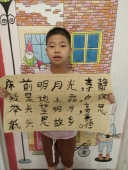 静夜思
李
床前明月光
疑是地上霜
举头望明月
低头思故乡